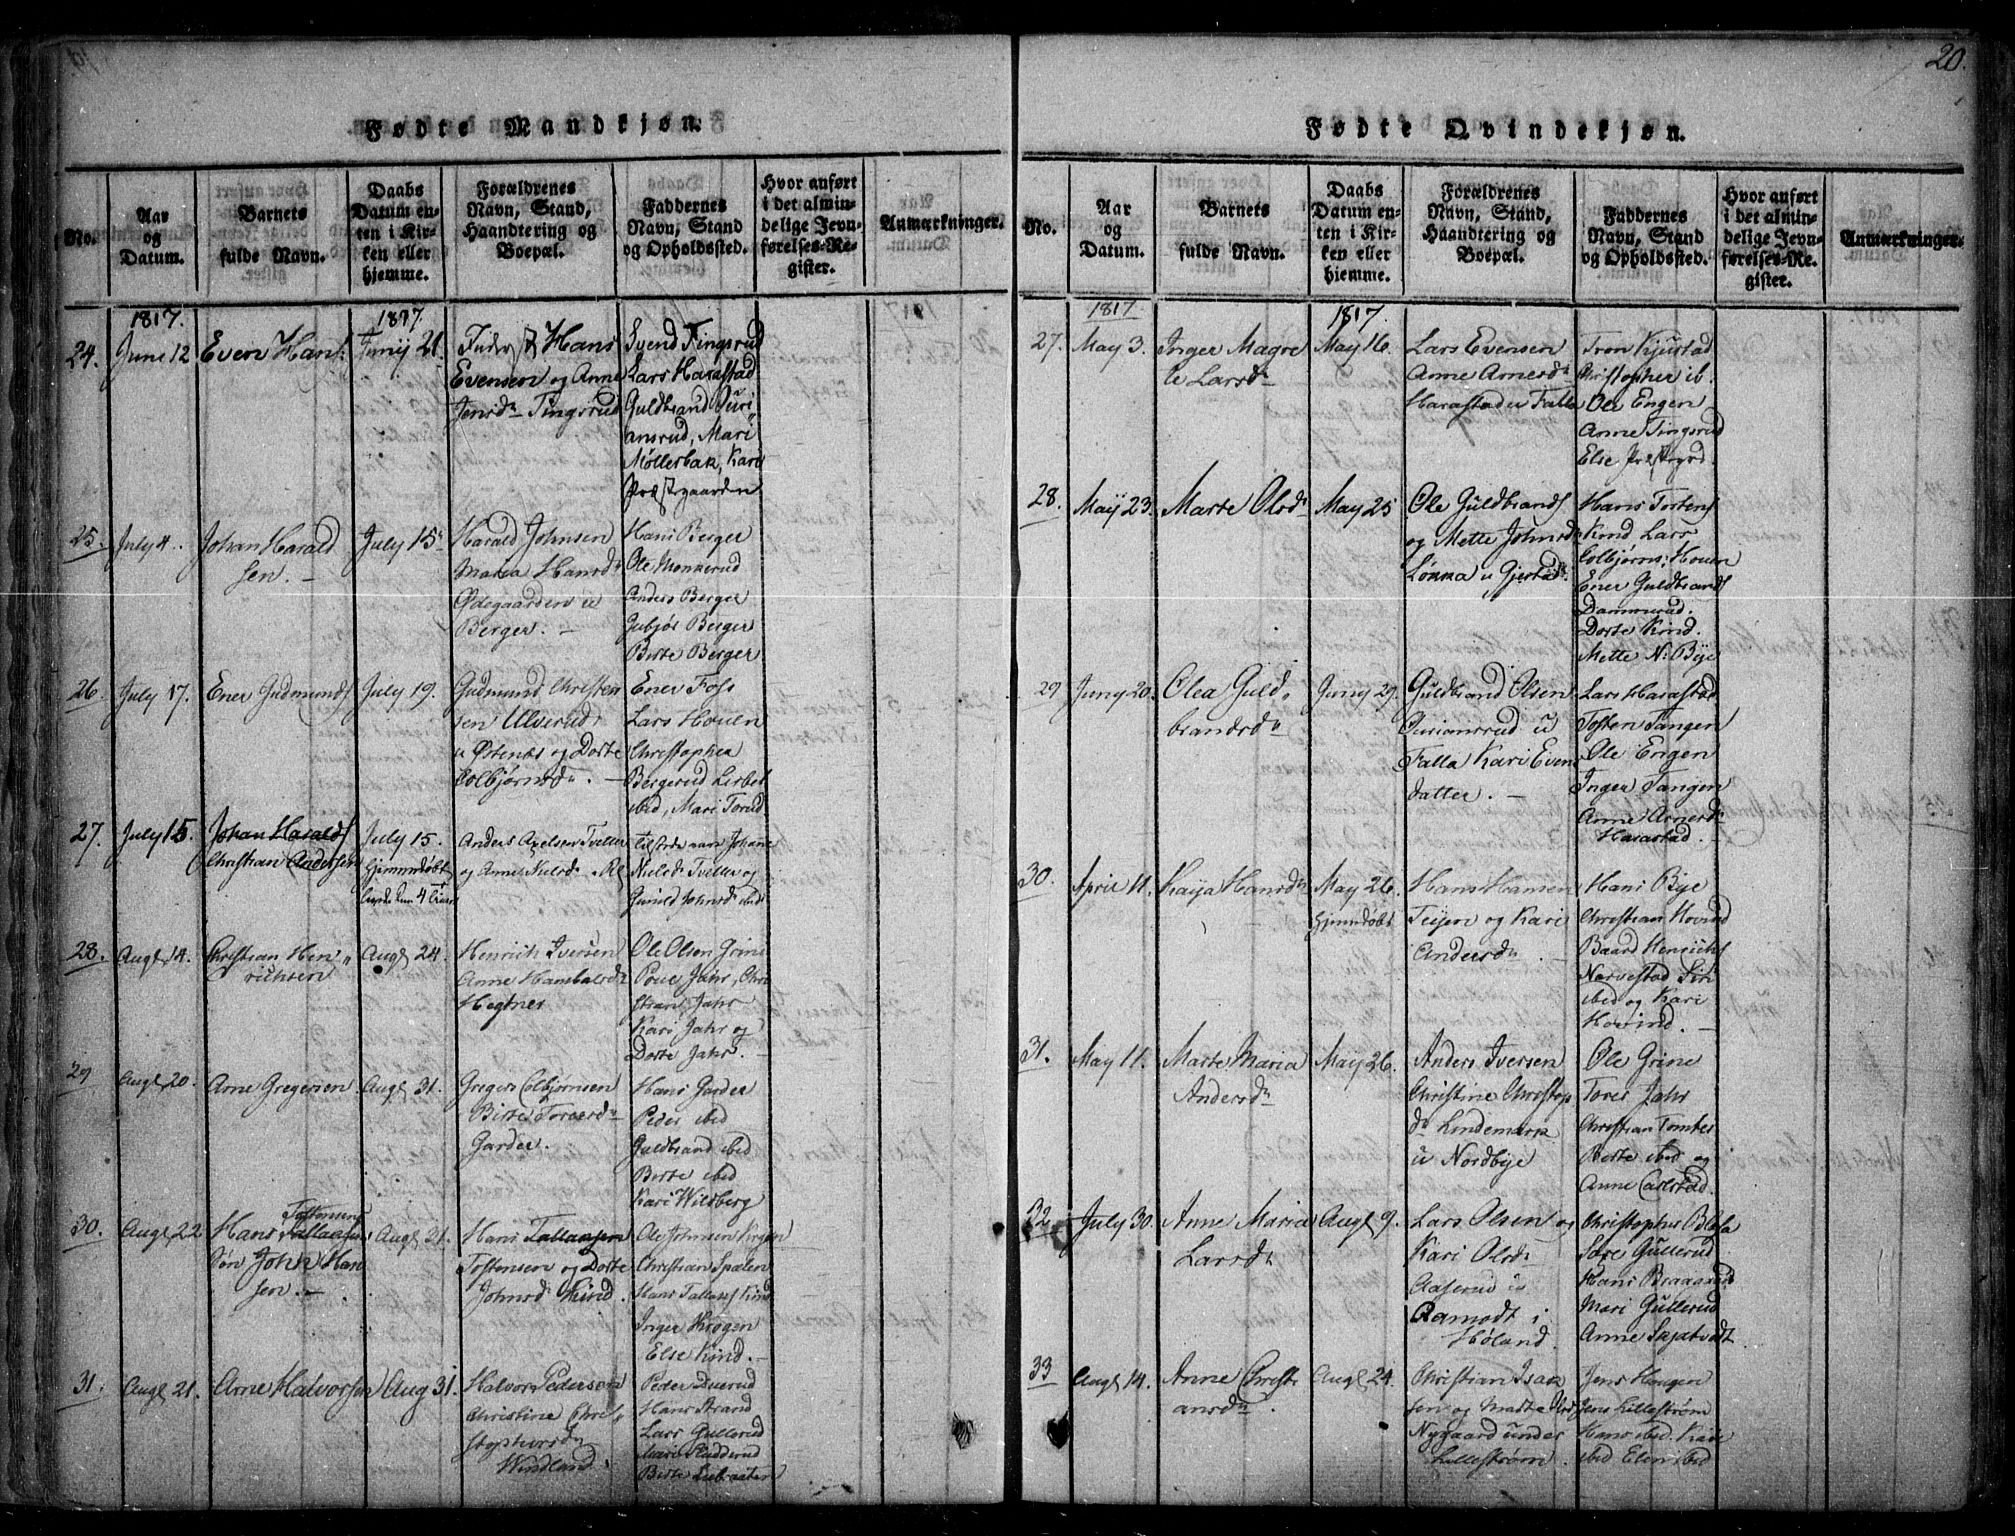 20.
Fødte Mandkjøn.
No.
Aar
og
Datum.
Barnets
fulde Navn.
Daabs
Datum en-
ten i Kir-
ken eller
hjemme.
Forældrenes
Navn, Stand,
Haandtering og
Boepæl.
Faddernes
Navn, Stand
og Opholdssted.
Hvor anført
i det almin-
delige Jevn-
førelses-Re-
gister.
Anmærkninger.
1817.
1817
24.
June 12
Even Hans:
Junij 21
Hans
Evensen og Anne
Jensdr Tingsrud
Svend Tingsrud
Lars Harastad
Guldbrand Juri
ansrud, Mari
Møllerbak, Kari
Præstegaarden
25.
July 4.
Johan Harald
sen. -
July 15
Harald Johnsen
Maria Hansdr
Ødegaarden u
Berger. -
Hans Berger
Ole Monkerud
Anders Berger
Gubjør Berger
Berte Berger
26
July 17.
Ener Gudmunds
July 19.
Gudmund Christen
sen Ulverud
u Østenæs og Dorte
Colbjørnsdr. -
Ener Foss
Lars Houen
Christopher
Bergerud Lisbet
ibid, Mari Torud
27.
July 15.
Johan Haralds
Christian Andersen
July 15.
Hjemmedøbt
Anders Axelsen Tveter
og Anne Nielsdr
Johanne
Nielsdr Tveter og
Gunild Johnsdr ibid
28.
Augs 14.
Christian Hen
richsen
Augs 24.
Henrich Iversen
Anne Hambalsdr
Hegtnes
Ole Olsen Grine
Poue Jahr, Chri
stian Jahr
Kari Jahr og
Dorte Jahr. -
29
Augs 20.
Arne Gregersen
Augs 31.
Gregers Colbjørnsen
Birte Torersdr
Garder.
Hans Garder
Peder ibid
Guldbrand ibid
Berte ibid
Kari Wilberg
30.
Augs 22
Hans Tallaksen
Tostensens
Søn John Han
sen. -
Augs 21.
Hans Tallaksen
Tostensen og Dorte
Johnsdr Kind.
Ole Johnsen Krogen
Christian Spalen
Hans Tallaks Kind
Inger Krogen
Else Kind. -
31.
Augs 21.
Arne Halvorsen
Aug 31.
Halvor Pedersen
Christine Chri
stophersdr
Windland.
Peder Duerud
Hans Strand
Lars Gullerud
Mari Fladderud
Berte Lubraaten
Fødte Qvindekjøn.
No.
Aar
og
Datum.
Barnets
fulde Navn.
Daabs
Datum en-
ten i Kir-
ken eller
hjemme.
Forældrenes
Navn, Stand,
Haandtering og
Boepæl.
Faddernes
Navn, Stand
og Opholdssted.
Hvor anført
i det almin-
delige Jevn-
førelses-Re-
gister.
Anmærkninger.
1817
1817.
27.
May 3.
Inger Magre
te Larsdr
May 16.
Lars Evensen
Anne Arnesdr
Harastad u Falla
Tron Kjustad
Christopher ib.
Ole Engen
Anne Tingsrud
Else Præstegrd.
28.
Maij 23.
Marte Olsdr
May 25
Ole Guldbrands
og Mette Johnsdr
Løkka u Gjestad.
Hans Tortens
Kind Lars
Colbjørns: Houen
Ener Guldbrands
Dammerud.
Dorte Kind.
Mette N: Bye
29
Juny 20.
Olea Guld
brandsdr
Juny 29.
Guldbrand Olsen
Juriansrud u
Falla Kari Evens
datter. -
Lars Harastad
Tosten Tangen
Ole Engen
Inger Tangen
Anne Arnesdr
Harastad. -
30.
April 11.
Kaija Hansdr
May 26.
Hjemmedøbt
Hans Hansen
Teijen og Kari
Andersdr. -
Hans Bye
Christian Hovind
Baard Henrichs
Norvestad Siri
ibid og Kari
Hovind. -
31.
May 11.
Marte Maria
Andersdr
May 26.
Anders Iversen
Christine Christop
dr Lindemark
u Nordbye
Ole Grine
Torer Jahr
Christian Tomter
Berte ibid og
Anne Carlstad.
32
July 30.
Anne Maria
Larsdr
Augs 9.
Lars Olsen og
Kari Olsdr
Aaserud u
Aamodt i
Høland.
Christopher Blixa
Søre Gullerud
Hans Braarud
Mari Gullerud
Anne Sajatvedt
33
Augs 14.
Anne Christi
ansdr.
Augs 24.
Christian Isak
sen og Marte
Nygaard under
Lillestrøm.
Jens Haugen
Jens Lillestrøm
Hans ibid. Kari
ibid Elen ibid